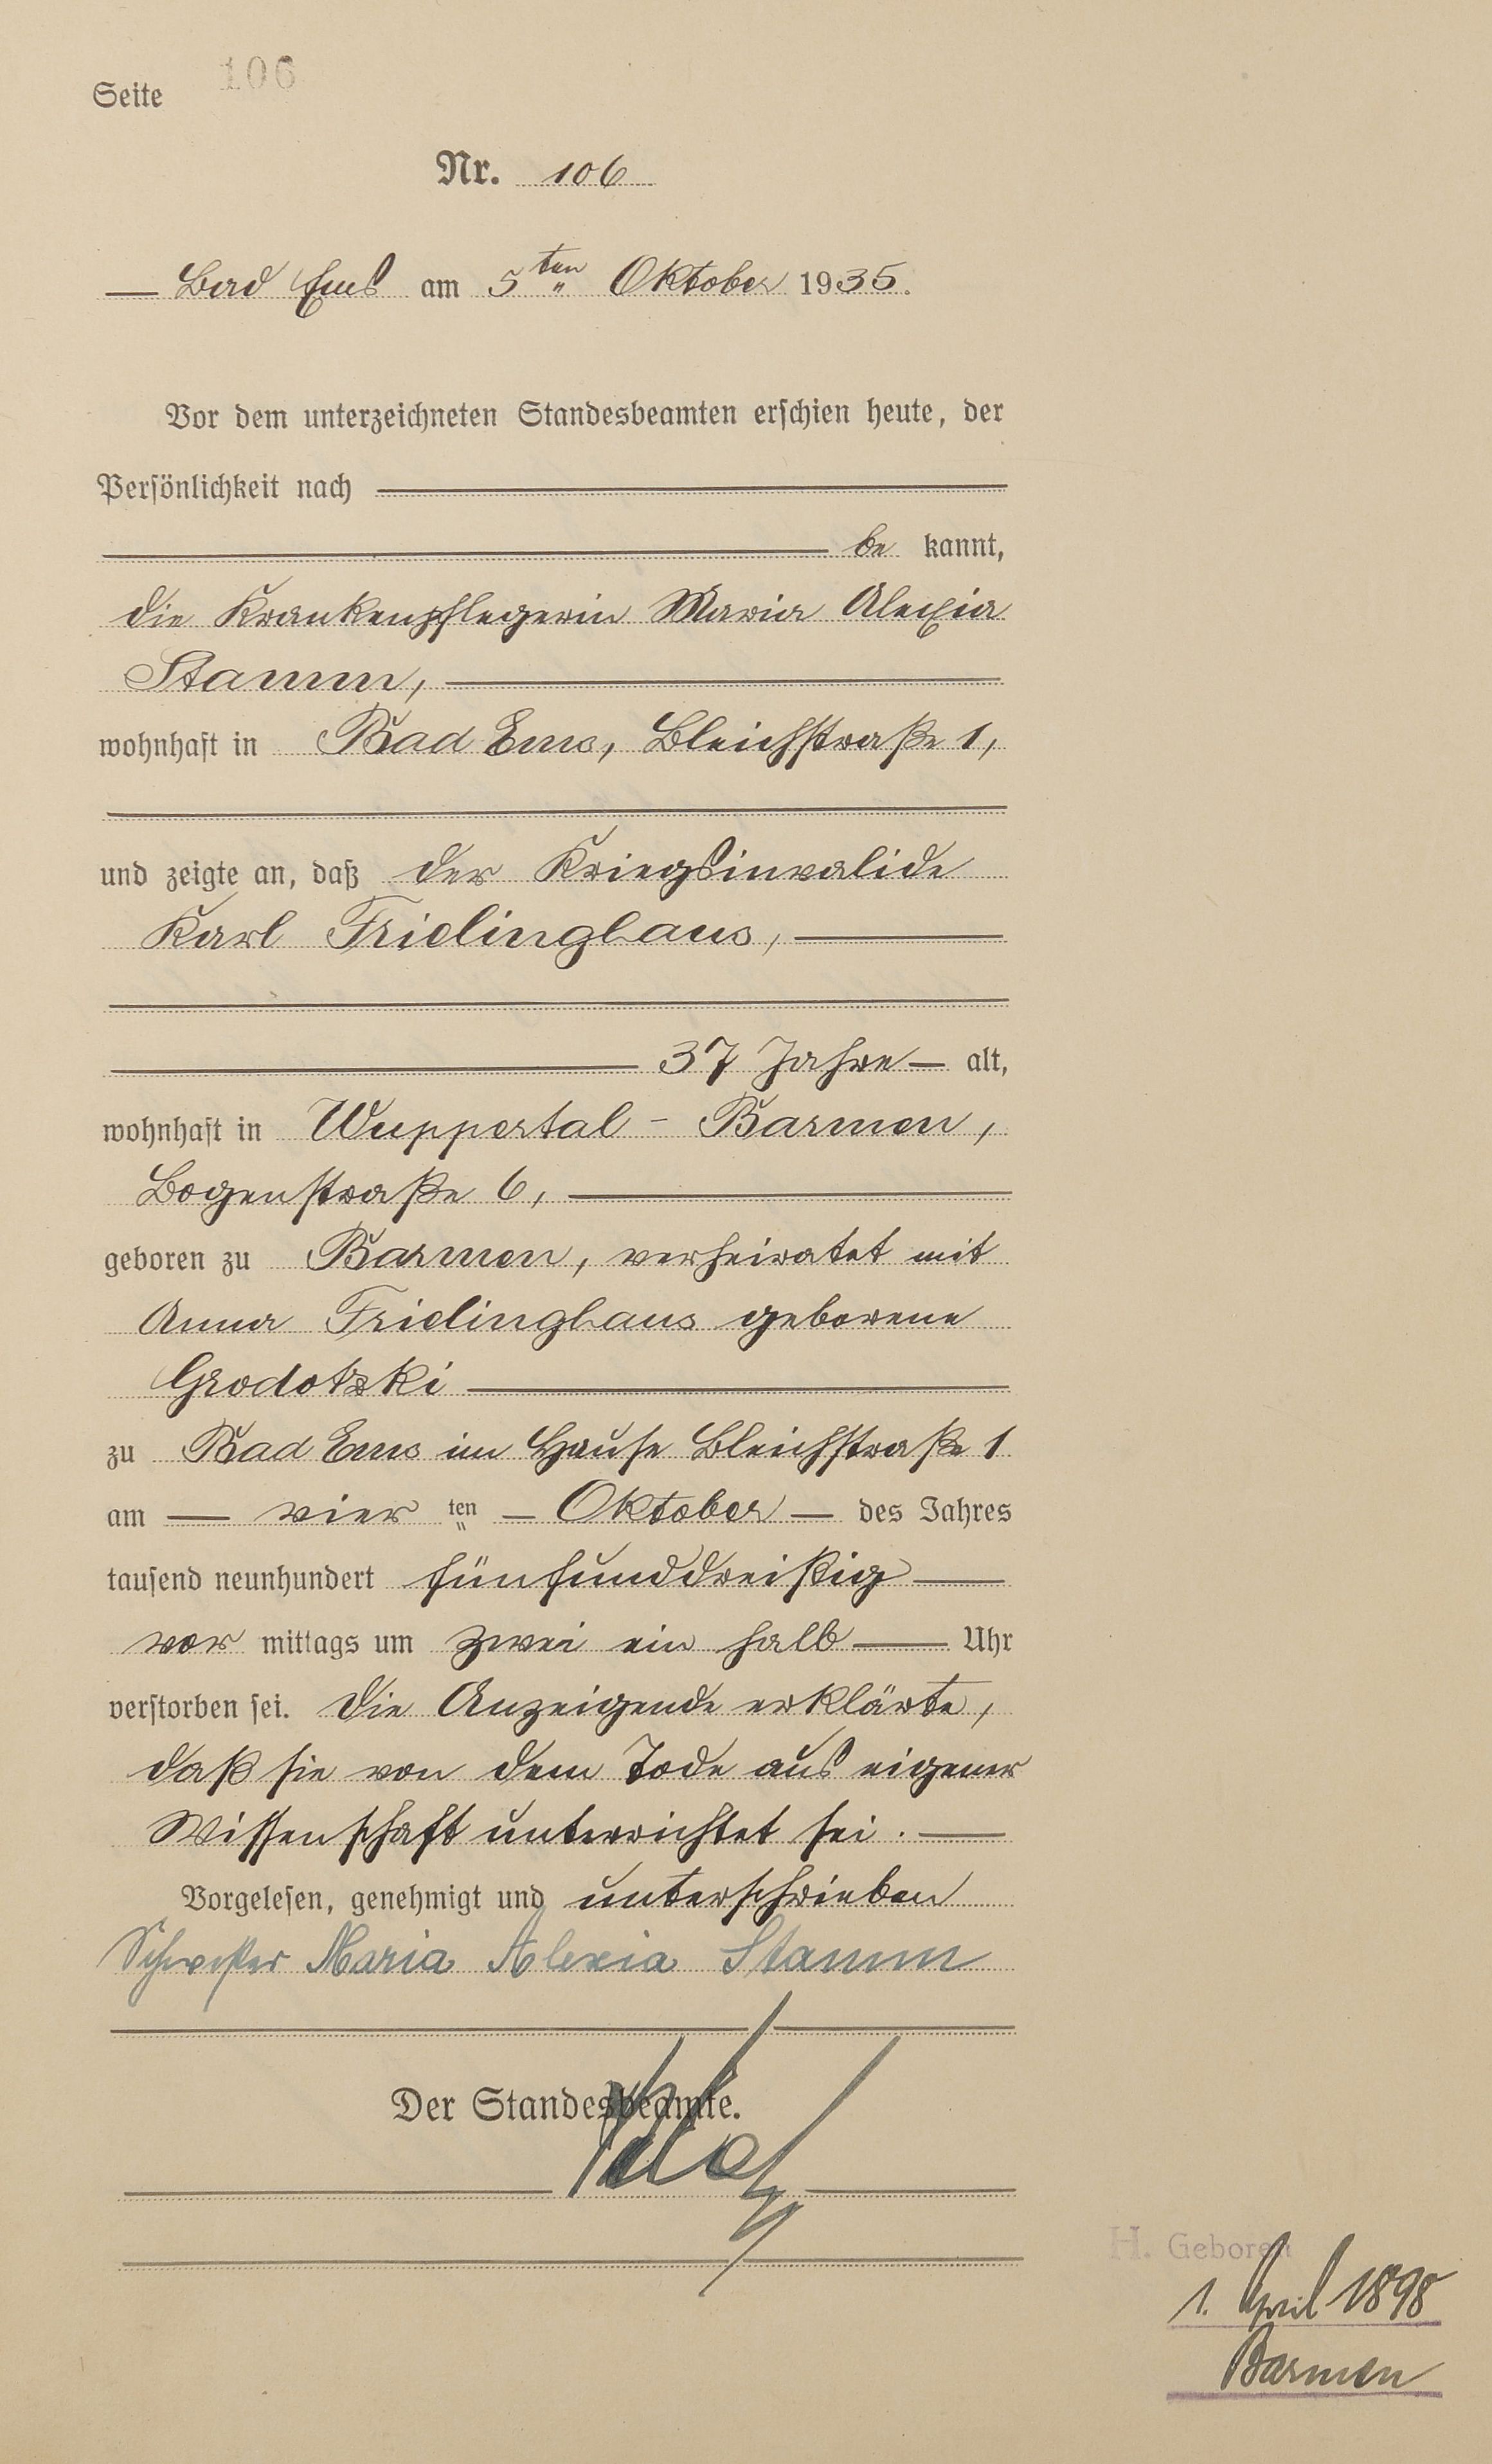 Seite 106
Nr. 106
Bad Ems am 5ten Oktober 1935.
Vor dem unterzeichneten Standesbeamten erschien heute, der
Persönlichkeit nach
be kannt,
die Krankenpflegerin Maria Alexia
Stamm,
wohnhaft in Bad Ems, Bleichstraße 1,
und zeigte an, daß der Kriegsinvalide
Karl Frielinghaus,
37 Jahre alt,
wohnhaft in Wuppertal - Barmen,
Bogenstraße 6,
geboren zu Barmen, verheiratet mit
Anna Frielinghaus geborene
Grodotzki
zu Bad Ems im Hause Bleichstraße 1
am vier ten Oktober des Jahres
tausend neunhundert fünfunddreißig
vor mittags um zwei ein halb Uhr
verstorben sei. Die Anzeigende erklärte,
daß sie von dem Tode aus eigener
Wissenschaft unterrichtet sei.
Vorgelesen, genehmigt und unterschrieben
Schwester Maria Alexia Stamm
Der Standesbeamte.
H. Geboren
1. April 1898
Barmen